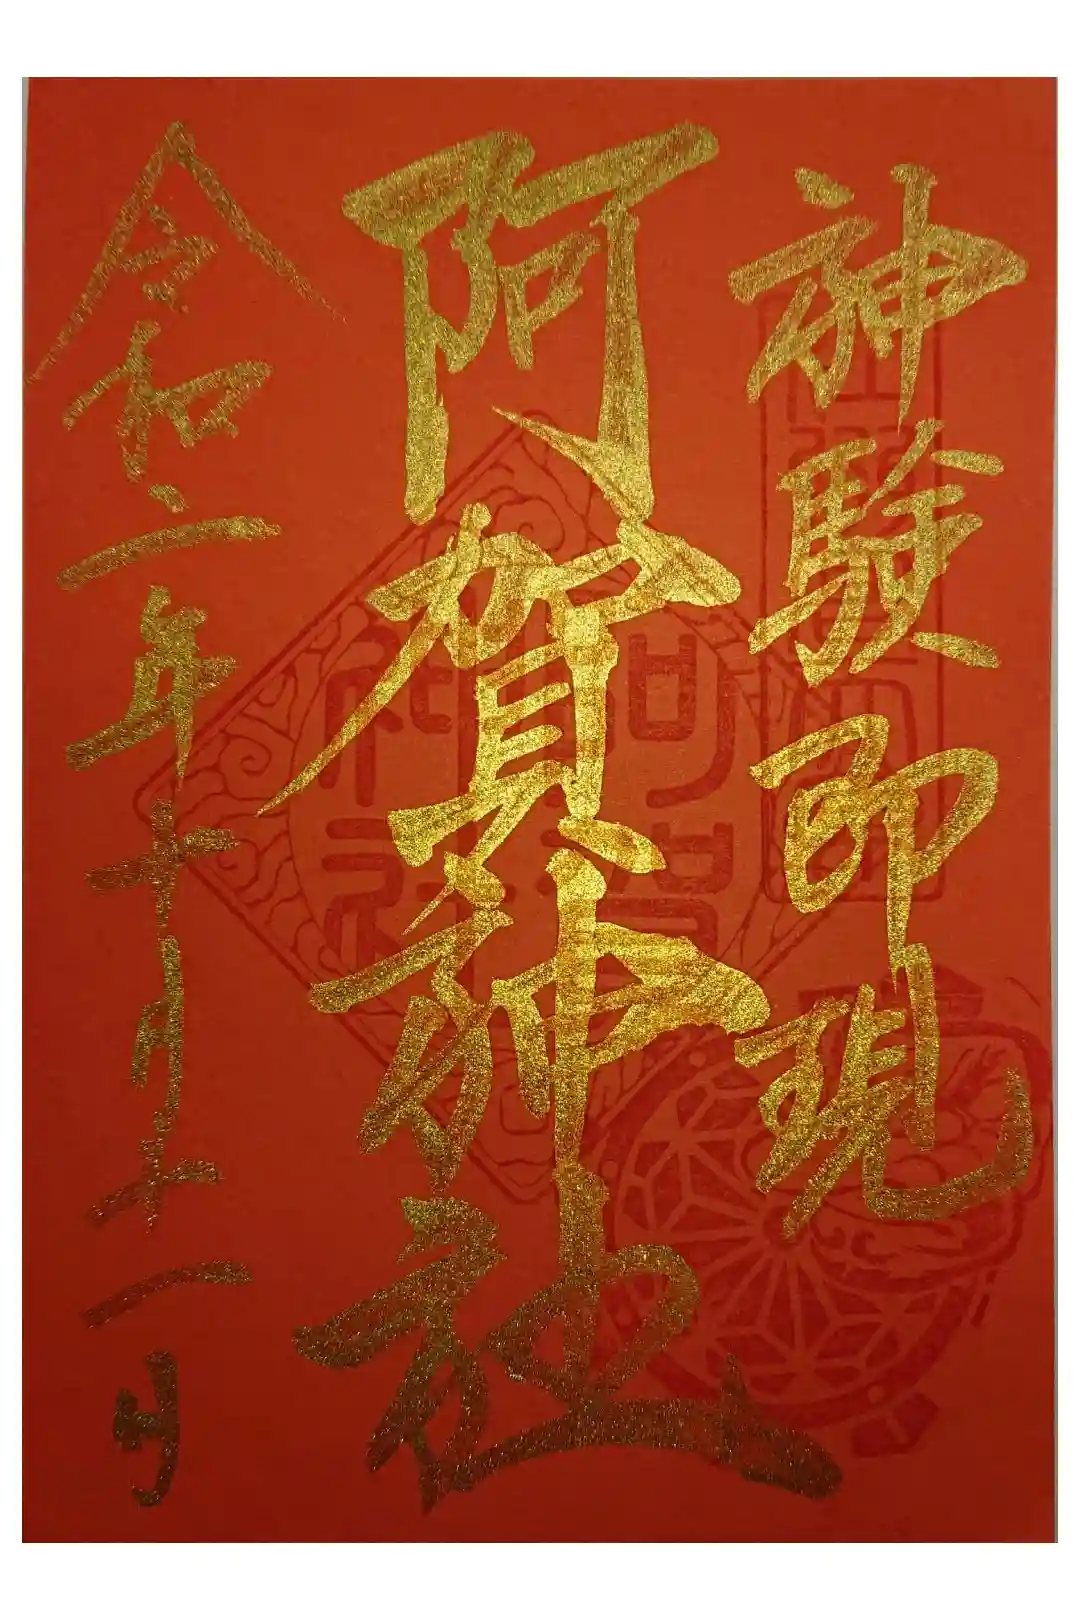 神験即現
阿賀神社
令和二年十月十一日